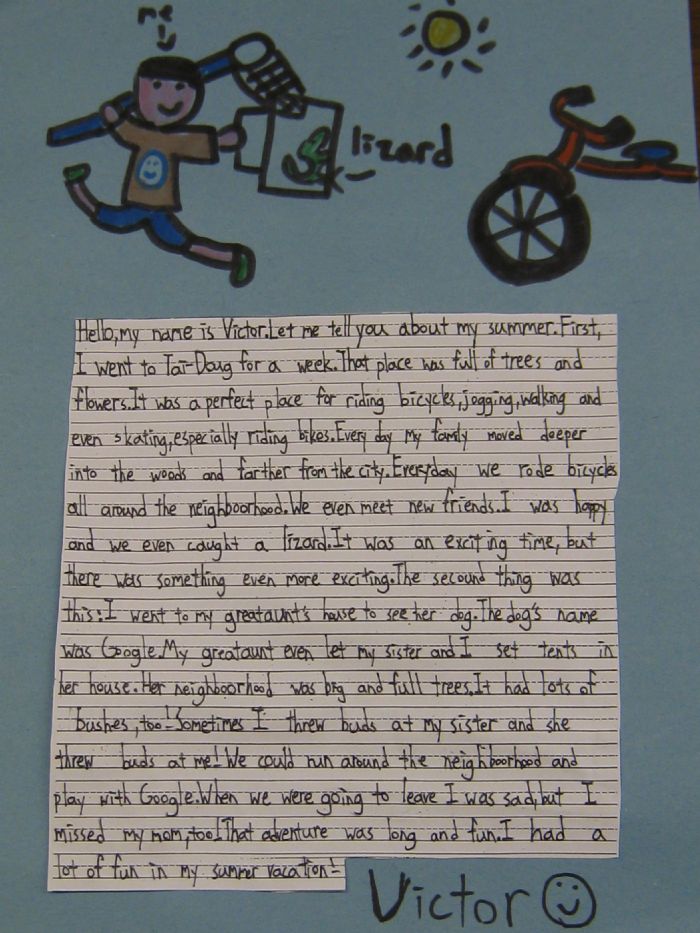 me
lizard
Hello,my name is Victor.Let me tell you about my summer.First,
I went to Tai-Doug for a week.That place was full of trees and
flowers.It was a perfect place for riding bicycles,jogging,walking and
even skating,especially riding bikes.Every day my family moved deeper
into the woods and farther from the city.Everyday we rode bicycles
all around the neighboorhood.We even meet new friends.I was happy
and we even caught a lizard.It was an exciting time, but
there was something even more exciting.The secound thing was
this:I went to my greataunt's house to see her dog.The dog's name
was Google.My greataunt even let my sister and I set tents in
her house.Her neighboorhood was big and full trees.It had lots of
bushes,too!Sometimes I threw buds at my sister and she
threw buds at me!We could run around the neighboorhood and
play with Google.When we were going to leave I was sad,but I
missed my mom,too!That adventure was long and fun.I had a
lot of fun in my summer vacation!
Victor